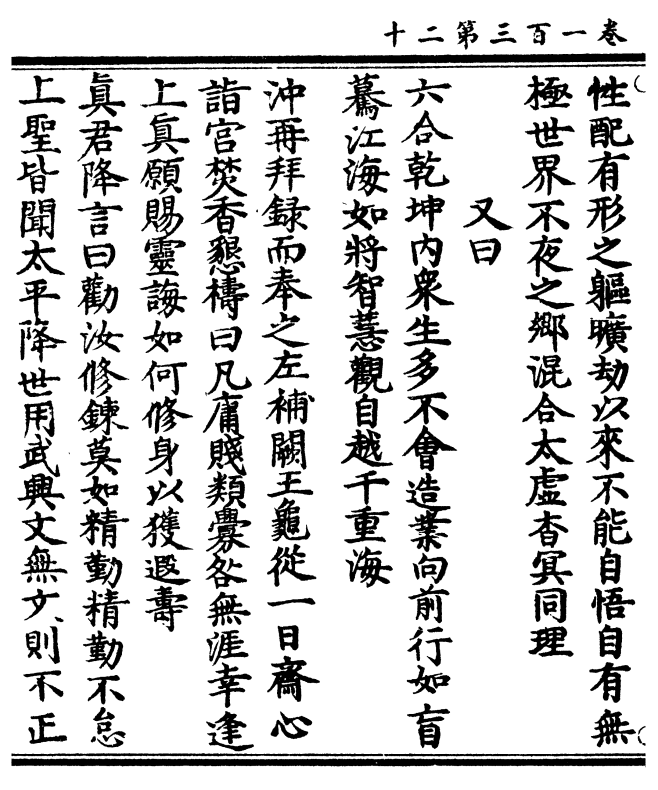 卷一百三第二十
性配有形之軀曠劫以來不能自悟自有無
極世界不夜之鄉混合太虛杳冥同理
又曰
六合乾坤內衆生多不會造業向前行如盲
驀江海如將智慧觀自越千重海
沖再拜録而奉之左補闕王龜從一日齋心
詣宮焚香懇禱曰凡庸賤類釁咎無涯幸逢
上眞願賜靈誨如何修身以獲遐壽
眞君降言曰勸汝修鍊莫如精勤精勤不怠
上聖皆聞太平降世用武興文無文則不正